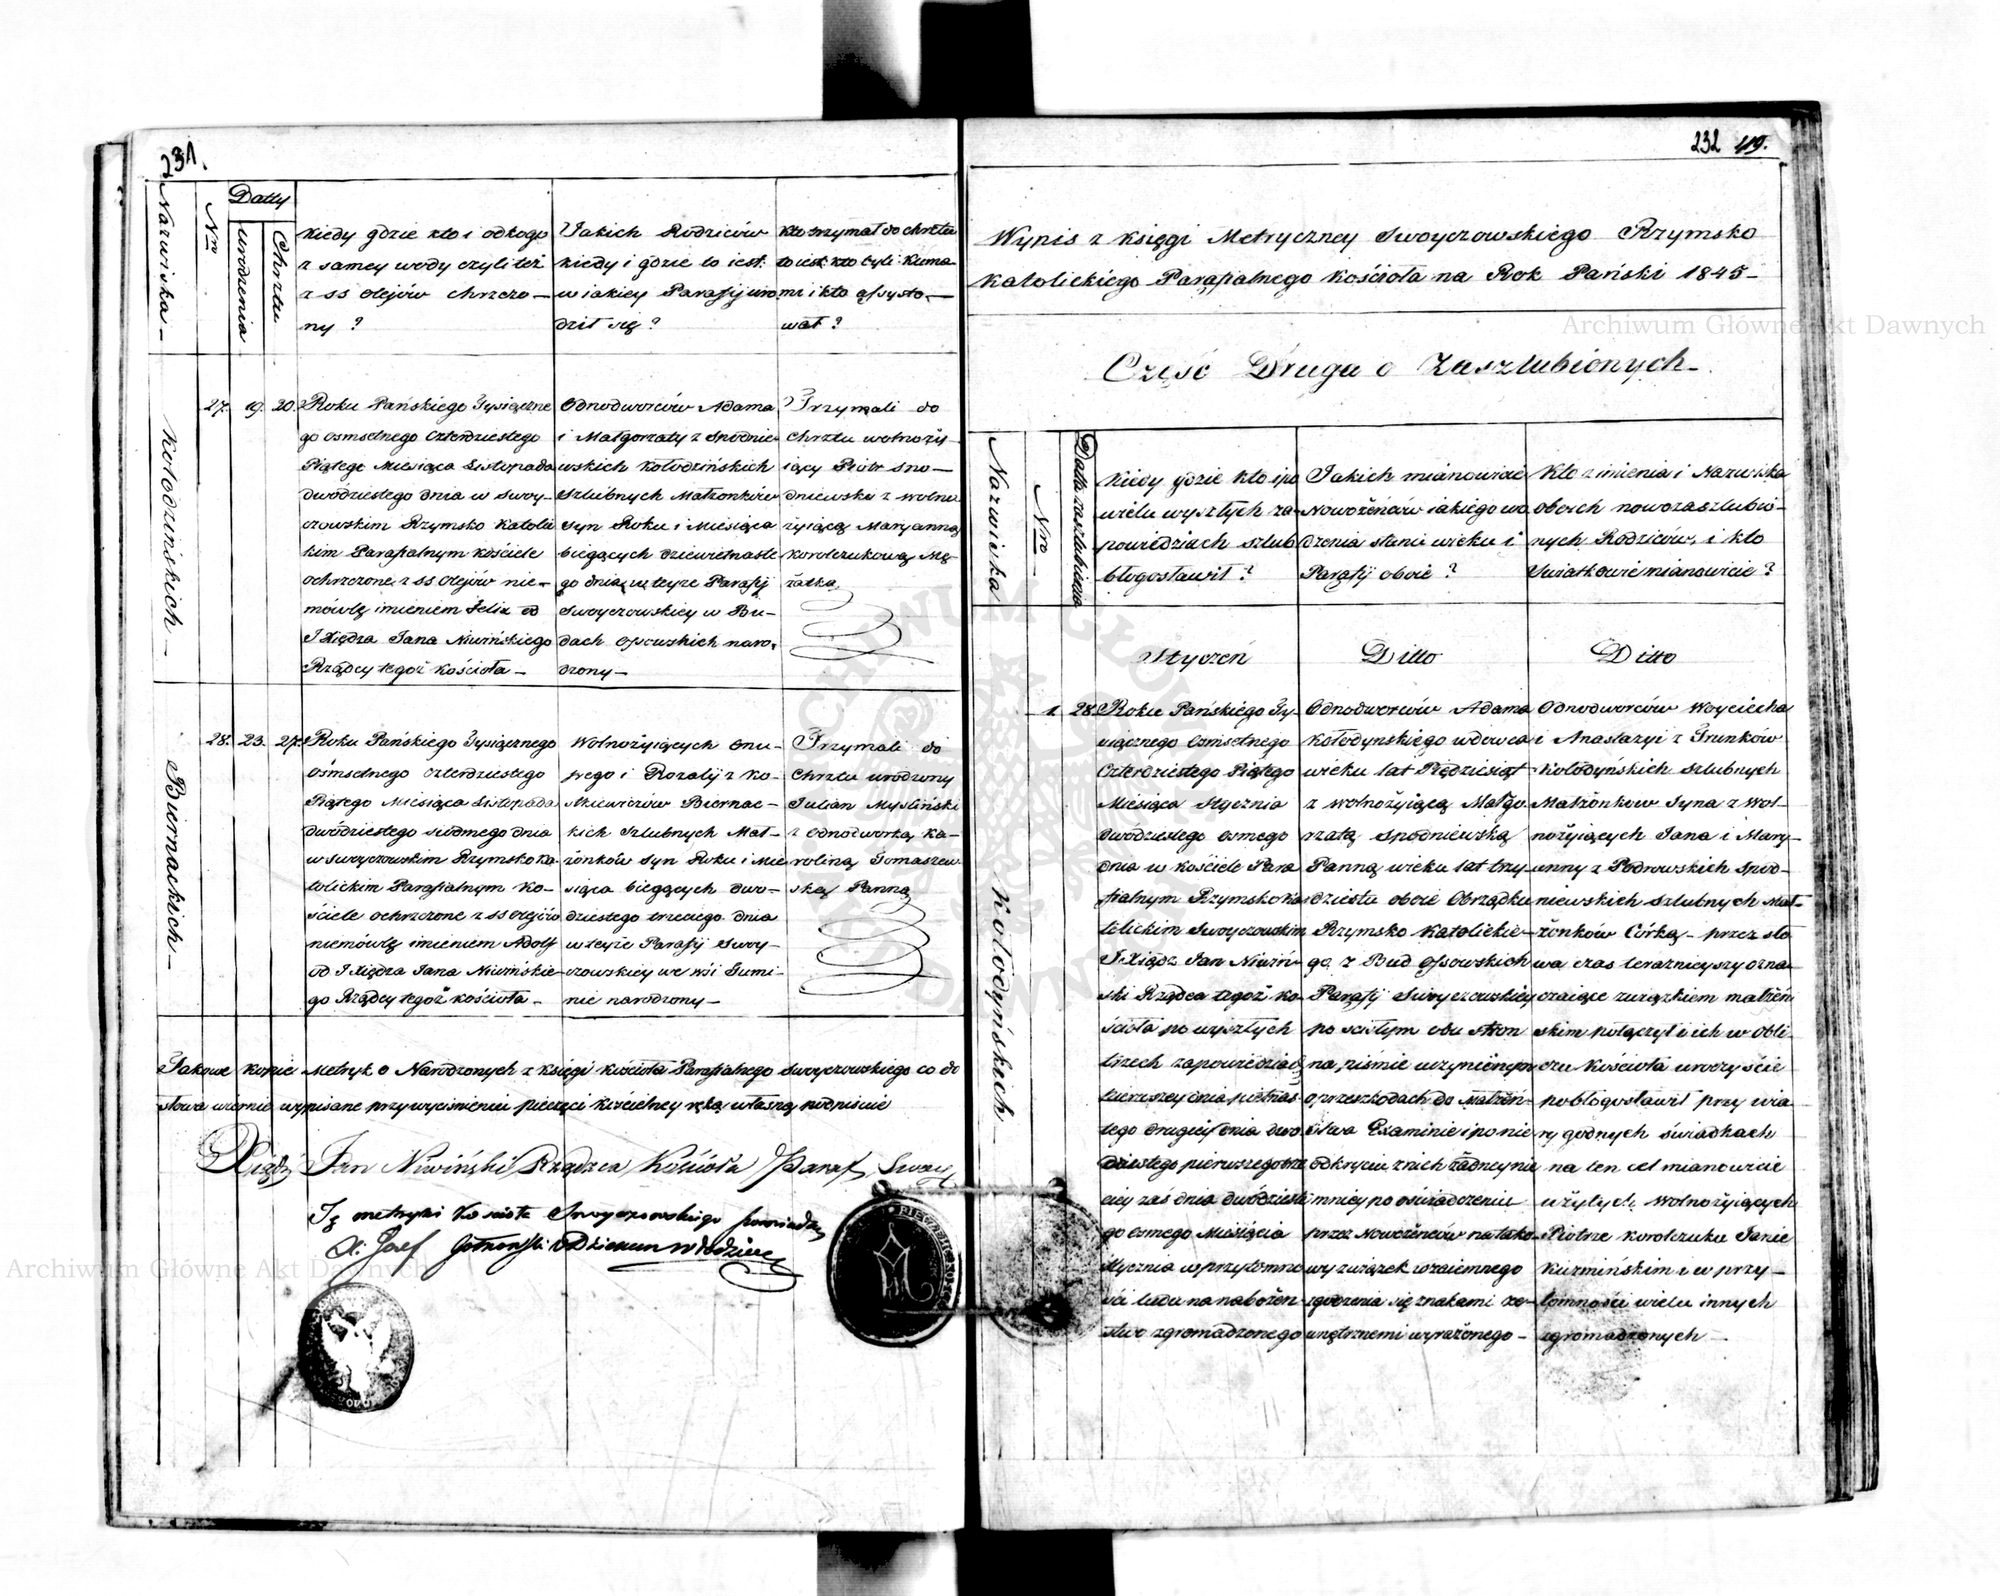 231.
Nazwiska
Nro
Datty
urodzenia
Chrztu
Kiedy gdzie kto i od kogo
z samey wody czyli też
z ss olejów chrzczo-
ny ?
Jakich Rodziców
kiedy i gdzie to iest
w iakiey Parafij uro
dził się ?
Kto trzymał do chrztu
to iest kto byli Kuma
mi i kto assysto-
wał ?
Kołodzińskich
27. 19. 20.
Roku Pańskiego Tysiączne
go osmsetnego czterdziestego
Piątego Miesiąca Listopada
dwudziestego dnia w Swoy-
czowskim Rzymsko Katolic
kim Parafialnym Kościele
ochrzczone z ss olejów nie-
mówlę imieniem Felix od
J Xiędza Jana Niwińskiego
Rządcy tegoż kościoła -
Odnodworców Adama
i Małgorzaty z Spodnie
wskich Kołodzińskich
Szlubnych Małżonków
syn Roku i Miesiąca
bieżących dziewietnaste
go dnia w teyże Parafij
Swoyczowskiey w Bu-
dach Ossowskich naro-
dzony -
Trzymali do
chrztu wolnoży-
iący Piotr Spo-
dniewski z wolno
żyiącą Maryanną
Korolczukową Mę-
żatką
Biernackich
28. 23. 27.
Roku Pańskiego Tysiącznego
Ośmsetnego czterdziestego
Piątego Miesiąca Listopada
dwódziestego siódmego dnia
w Swoyczowskim Rzymsko Ka
tolickim Parafialnym Ko-
ściele ochrzczone z ss olejów
niemówlę imieniem Adolf
od J Xiędza Jana Niwińskie
go Rządcy tegoż kościoła -
Wolnożyiących Onu-
frego i Rozalij z Ko-
Biernac-
kich szlubnych Mał-
żonków syn Roku i Mie
siąca bieżących dwo-
dziestego trzeciego dnia
w teyże Parafij Swoy-
czowskiey we wsi Gumi-
nie narodzony -
Trzymali do
Chrztu urodzony
Julian Mysliński
z Odnodworką Ka-
roliną Tomaszew
ską Panną
Takowe kopie Metryk o Narodzonych z księgi kościoła Parafialnego Swoyczowskiego co do
słowa wiernie wypisane przy wyciśnieniu pieczęci kościelney ręką własną podpisuię
Xiądz Jan Niwiński Rządzca Kościoła Paraf Swoy
Tę metryki Kościoła Swoyczowskiego
X. Józef Dziekan Włodzim
232 49.
Wypis z księgi Metryczney Swoyczowskiego Rzymsko
Katolickiego Parafialnego Kościoła na Rok Pański 1845 -
Część Druga o Zaszlubionych -
Nazwiska
Nro
Datta zaszlubienia
Kiedy gdzie kto i po
wielu wyszłych za-
powiedziach szlub
błogosławił ?
Jakich mianowicie
Nowożeńców iakiego uro
dzenia stanu wieku i
Parafij oboie ?
Kto z imienia i Nazwiska
oboich nowozaszlubio-
nych Rodziców, i kto
Świadkowie mianowicie ?
Styczeń
Ditto
Ditto
Kołodyńskich
1. 28.
Roku Pańskiego Ty-
siącznego Osmsetnego
Czterdziestego Piątego
Miesiąca Stycznia
dwódziestego osmego
dnia w kościele Para
fialnym Rzymsko Ka
tolickim Swoyczowskim
J Xiądz Jan Niwiń-
ski Rządca tegoż ko-
ścioła po wyszłych
trzech zapowiedziach
pierwszey dnia piętnas
tego drugiey dnia dwó
dziestego pierwszego trze
ciey zaś dnia dwódzieste
go osmego Miesiąca
Stycznia w przytomno
ści ludu na nabożeń-
stwo zgromadzonego
Odnodworców Adama
Kołodyńskiego wdowca
wieku lat Piędziesiąt
z Wolnożyiącą Małgo
rzatą Spodniewską
Panną wieku lat trzy-
dziestu oboie Obrządku
Rzymsko Katolickie-
go z Bud Ossowskich
Parafij Swoyczowskiey
po scisłym obu stron
na piśmie uczynionym
o przeszkodach do Małżeń-
stwa Examinie i po nie
odkryciu z nich żadney nie
mniey po oświadczeniu
przez Nowożeńców na tako
wy związek wzaiemnego
zgodzenia się znakami ze-
wnętrznemi wyrażonego -
Odnodworców Woyciecha
i Anastazyi z Trunków
Kołodyńskich szlubnych
Małżonków Syna z Wol-
nożyiących Jana i Mary-
anny z Podrowskich Spod-
niewskich szlubnych Mał-
żonków Córką - przez sło
wa czas teraznieyszy ozna-
czaiące związkiem małżeń
skim połączył i ich w obli-
czu Kościoła uroczyście
pobłogosławił przy wia
ry godnych świadkach
na ten cel mianowicie
użytych Wolnożyiących
Piotrze Korolczuku Janie
Kuzmińskim i w przy-
tomności wielu innych
zgromadzonych -
Archiwum Główne Akt Dawnych
Archiwum Główne Akt Dawnych